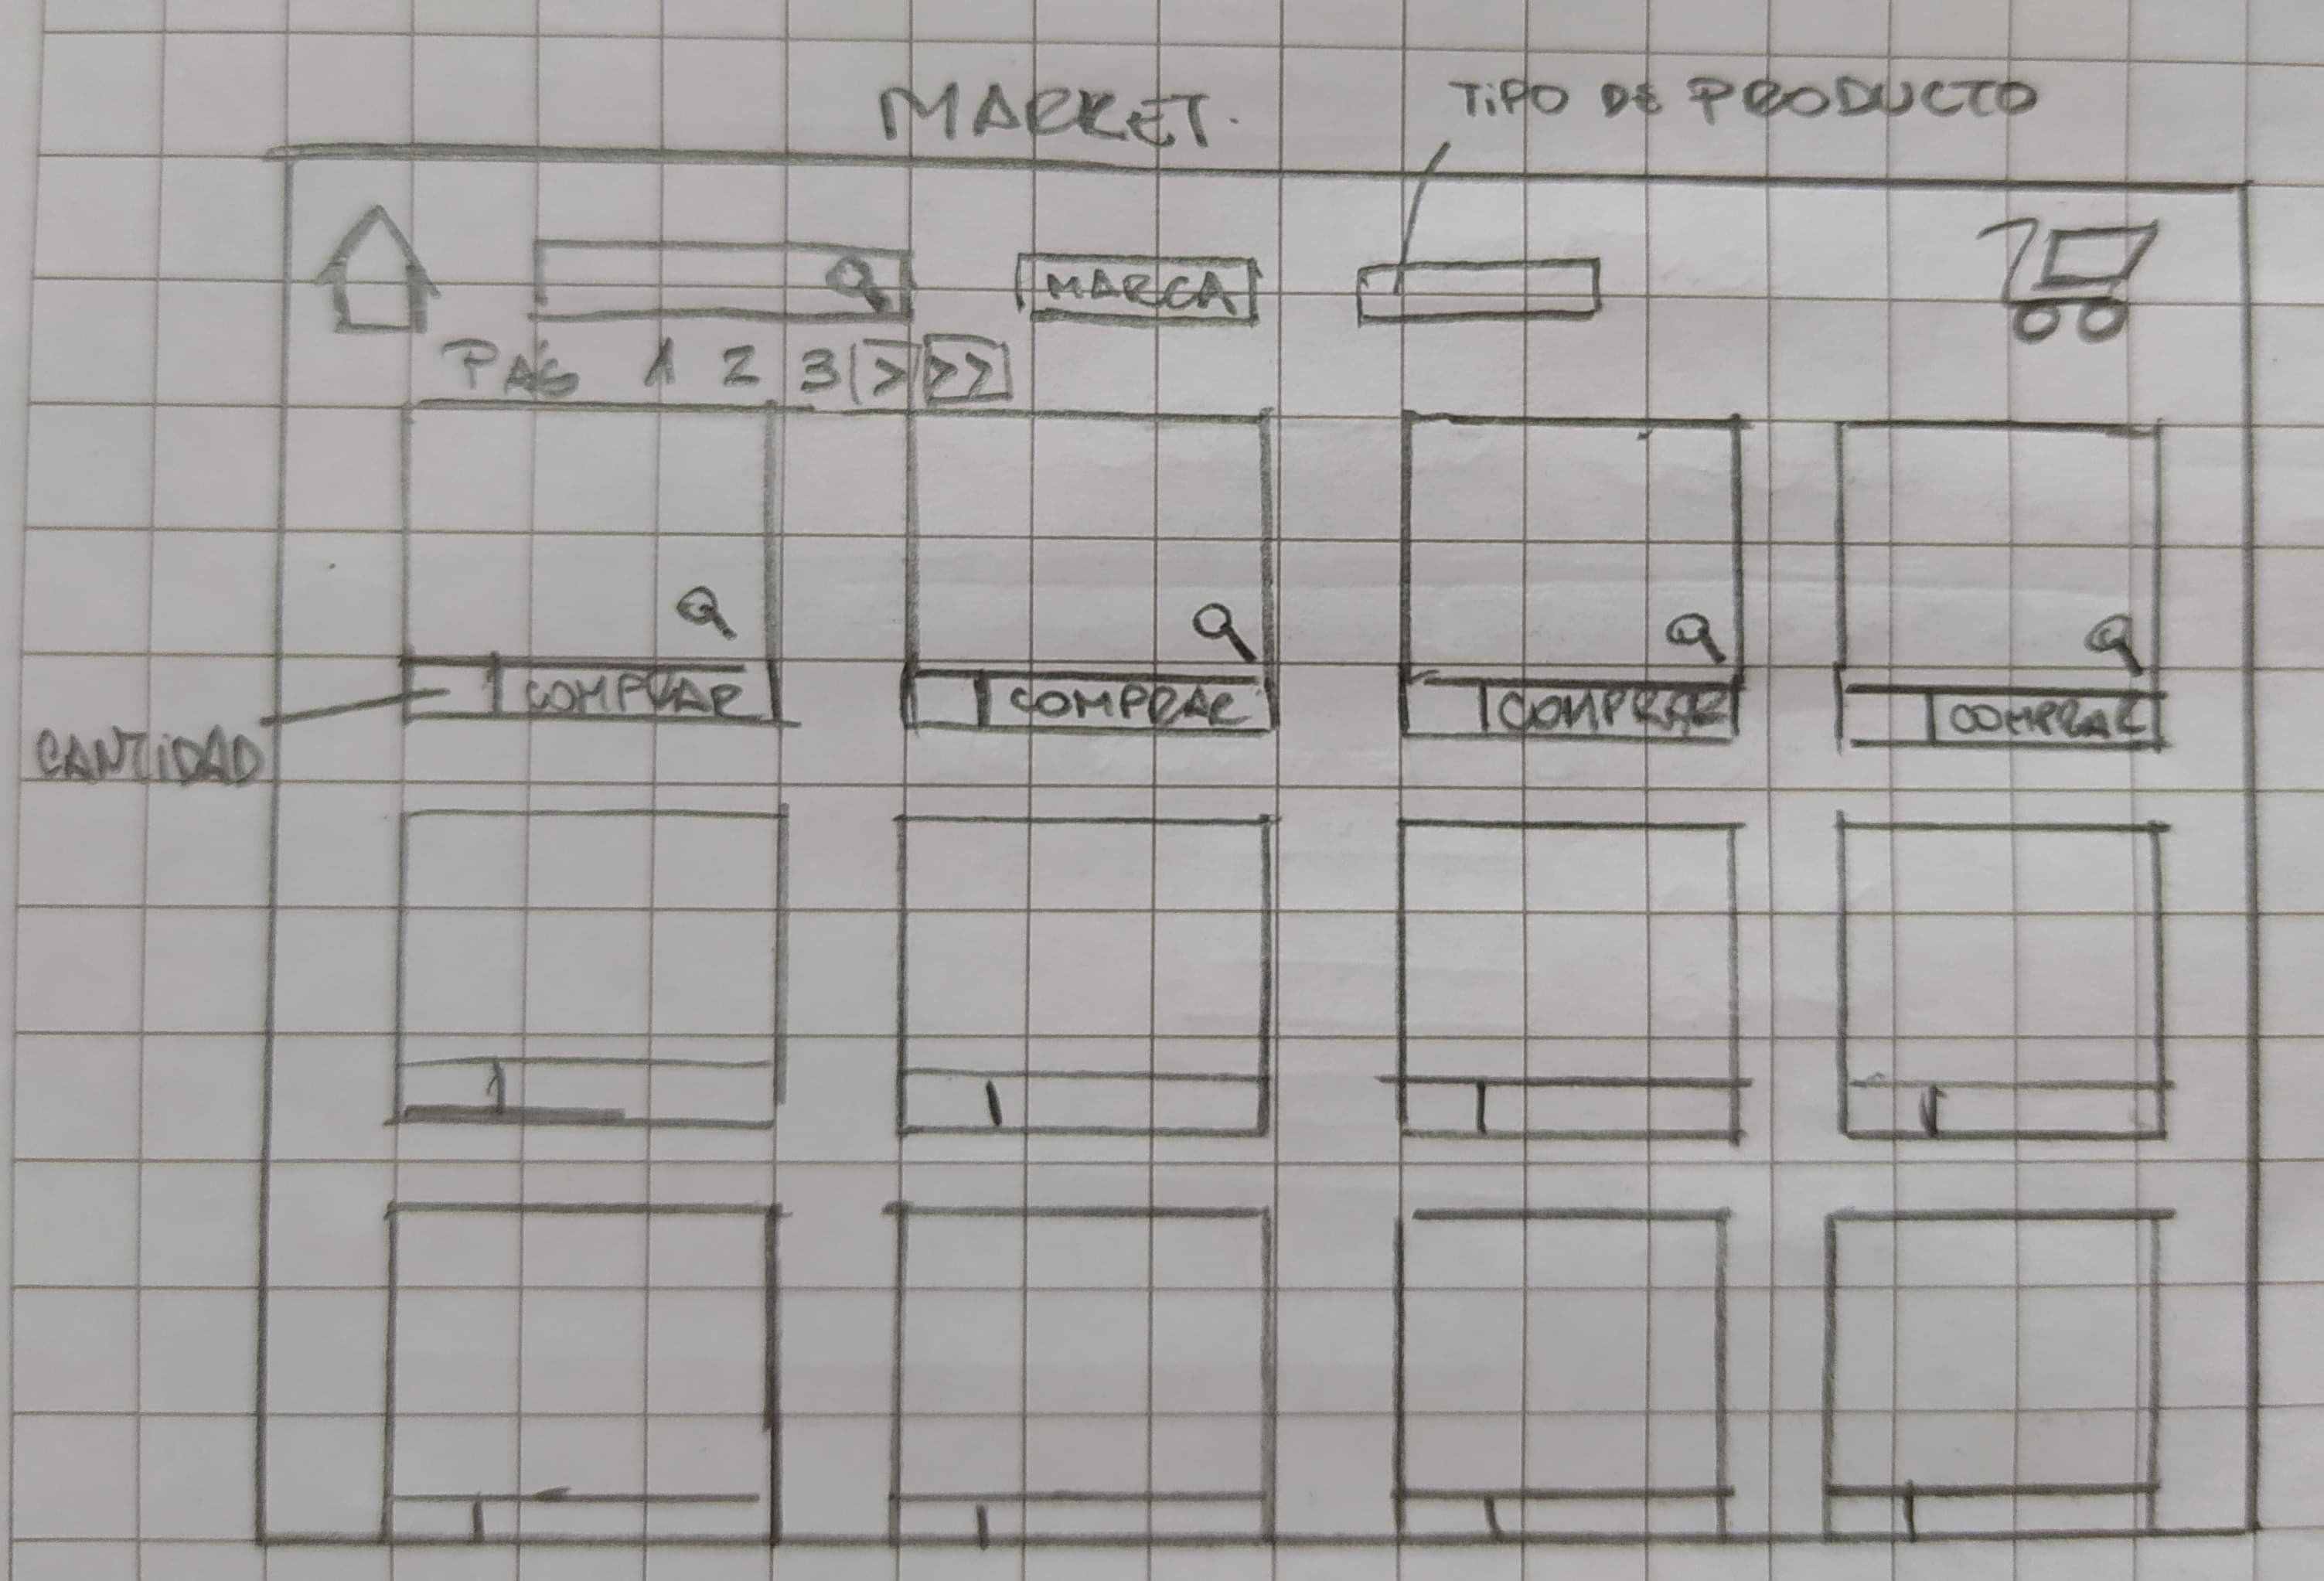 MARKET.
TIPO DE PRODUCTO
MARCA
PAG 1 2 3 > >>
COMPRAR
COMPRAR
COMPRAR
COMPRAR
CANTIDAD